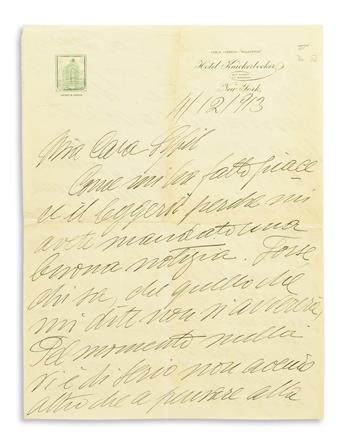 Hotel Knickerbocker
New York
4/12/913
Mia Cara Sybil
Come mi ha fatto piace
re il leggerti perché mi
avete mandato una
buona notizia. Forse
chi sa, che quello che
mi dite non si avveri,
Pel momento nulla
vi è di serio non accenno
altro che a pensare alla